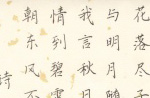 花落尽子
与明月
我言秋日
情到碧霄
朝东风不
诗